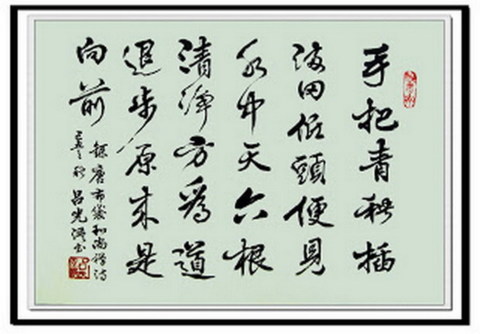 手把青秧插
满田低頭便見
水中天六根
清净方為道
退步原来是
向前
錄唐布袋和尚禅诗
秋 吕光 书